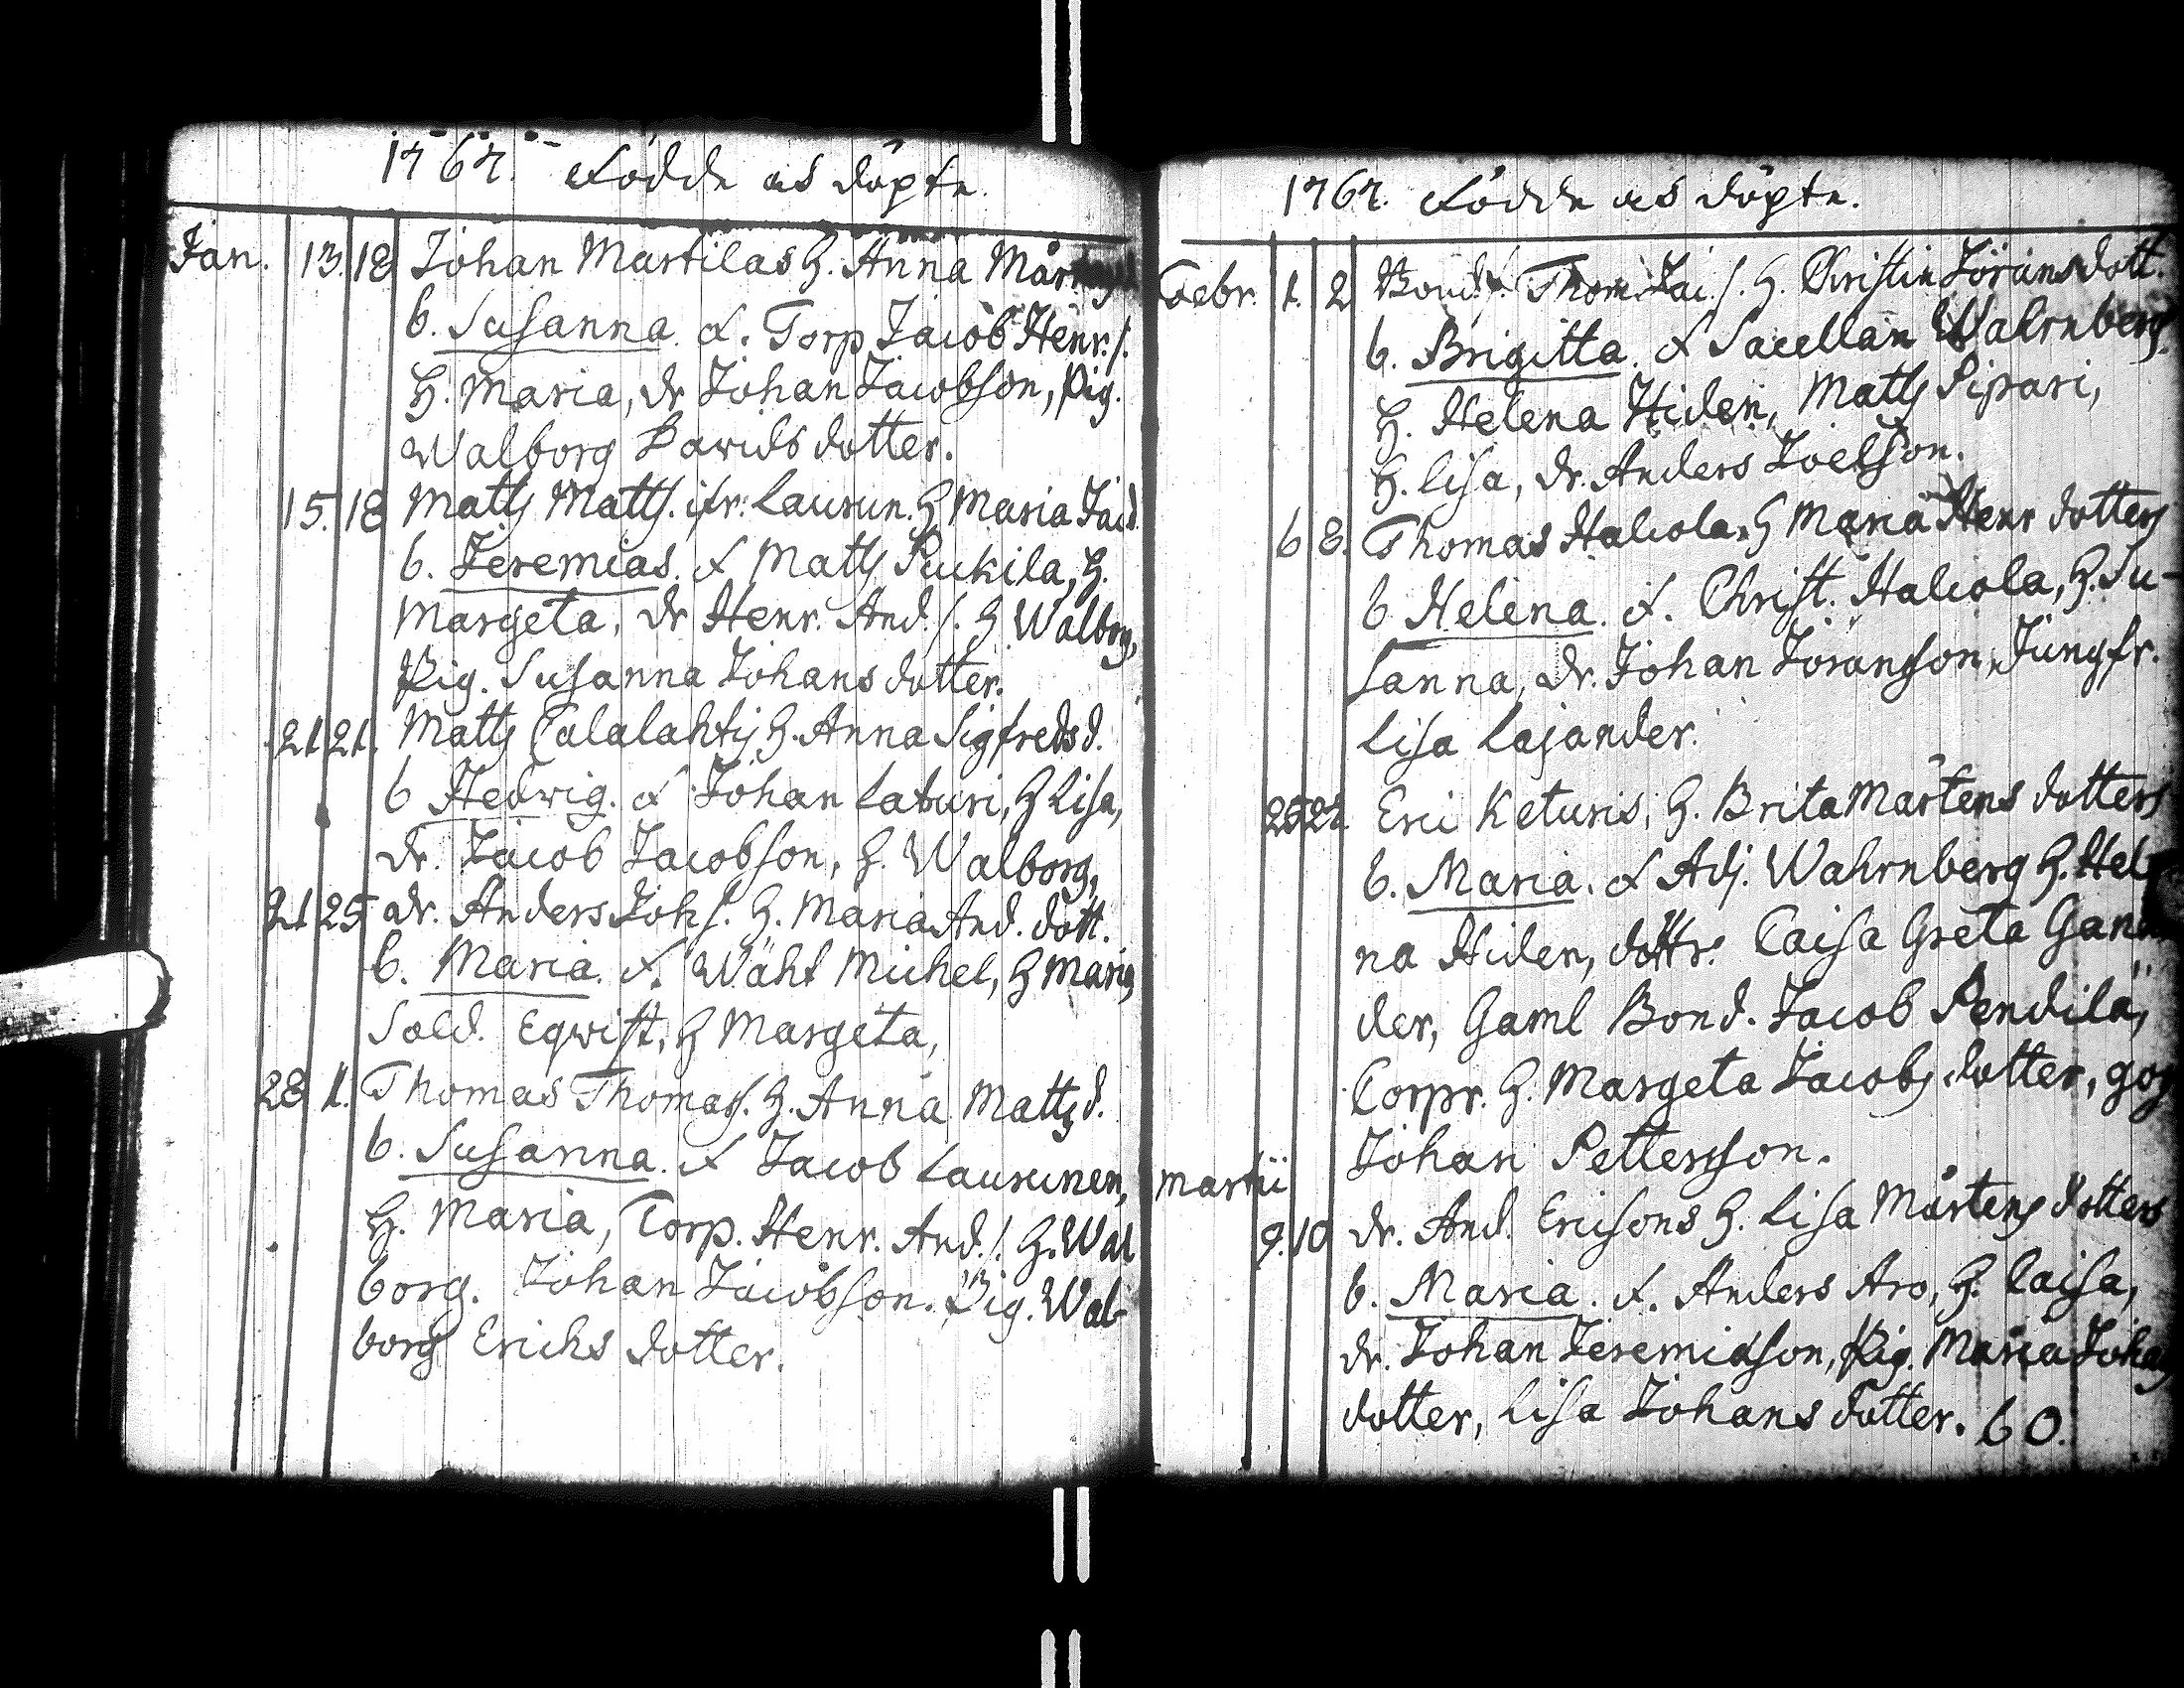 1767. Födde ok döpte.
Jan. 13. 18 Johan Martilas H. Anna
b. Susanna. f. Torp Jacob Henr. s.
H. Maria, dr Johan Jacobson, Pig.
Walborg Davids dotter.
15. 18 Matts Matts. ifr. Laurun. H Maria Jac.d.
b. Jeremias. f Matts Puckila, H.
Margeta, dr Henr. And. s. H Walborg,
Pig. Susanna Johans dotter.
21 21. Matts Calalahtis H. Anna Sigfredsd.
b Hedwig. f Johan Laturi, H Lisa,
dr. Jacob Jacobson, H. Walborg,
21 25 dr. Anders Joh s. H. Maria And. dott.
b. Maria. f. Wäht Michel, H Maria,
Sold. Eqwist, H Margeta,
28 1. Thomas Thomas. H. Anna Mattsd.
b. Susanna. f Jacob Laurunen,
H. Maria, Torp. Henr. And. s. H. Wal
borg. Johan Jacobson. Pig. Wal-
borg Erichs dotter.
1767. Födde ok döpte.
Febr. 1. 2 Bond. f. Thom. Jac. s. H. Christin Jöransdott.
b. Brigitta. f Sacellan Wahrnberg
H. Helena Hiden, Matts Pipari,
H. Lisa, dr. Anders Joelson.
6 8. Thomas Halcola. H Maria Henr dotters
b Helena. f. Christ. Halcola, H. Su-
sanna, dr. Johan Jöransson, Jungfr.
Lisa Lajander.
Eric Keturis, H. Brita Mårtens dotters
b. Maria. f Adj. Wahrnberg H. Hele
na Hiden, dottr. Caisa Greta Gan
der, Gaml Bond. Jacob Pendilä,
Corpr. H. Margeta Jacobs dotter, gos
Johan Pettersson.
Martii
9. 10 dr. And. Ericsons H. Lisa Mårtens dotters
b. Maria. f. Anders Aro, H. Caisa,
dr. Johan Jeremiason, Pig. Maria Johans
dotter, Lisa Johans dotter. 60.